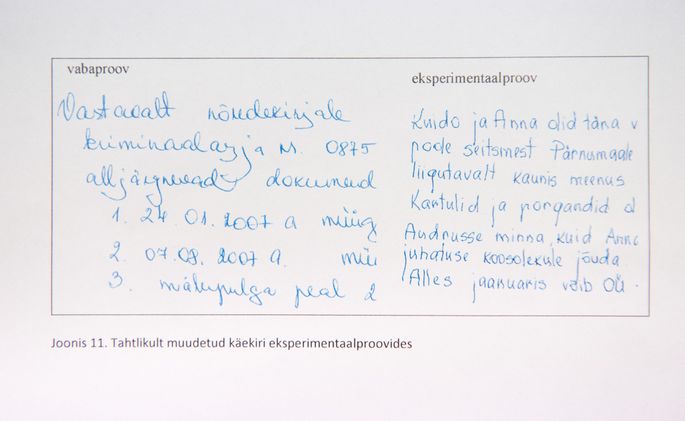 vabaproov
Vastavalt nõudekirjale
kriminaalasja nr. 0875
alljärgnevad dokumend
1. 24.01.2007 a müüg
2. 07.08.2007 a. müü
3. mälupulga peal 2
eksperimentaalproov
Kuido ja Anna olid täna v
poole seitsmest Pärnumaale
liigutavalt kaunis meenus
Kartulid ja porgandid ol
Audrusse minna, kuid Anna
juhatuse koosolekule jõuda.
Alles jaanuaris võib OÜ
Joonis 11. Tahtlikult muudetud käekiri eksperimentaalproovides